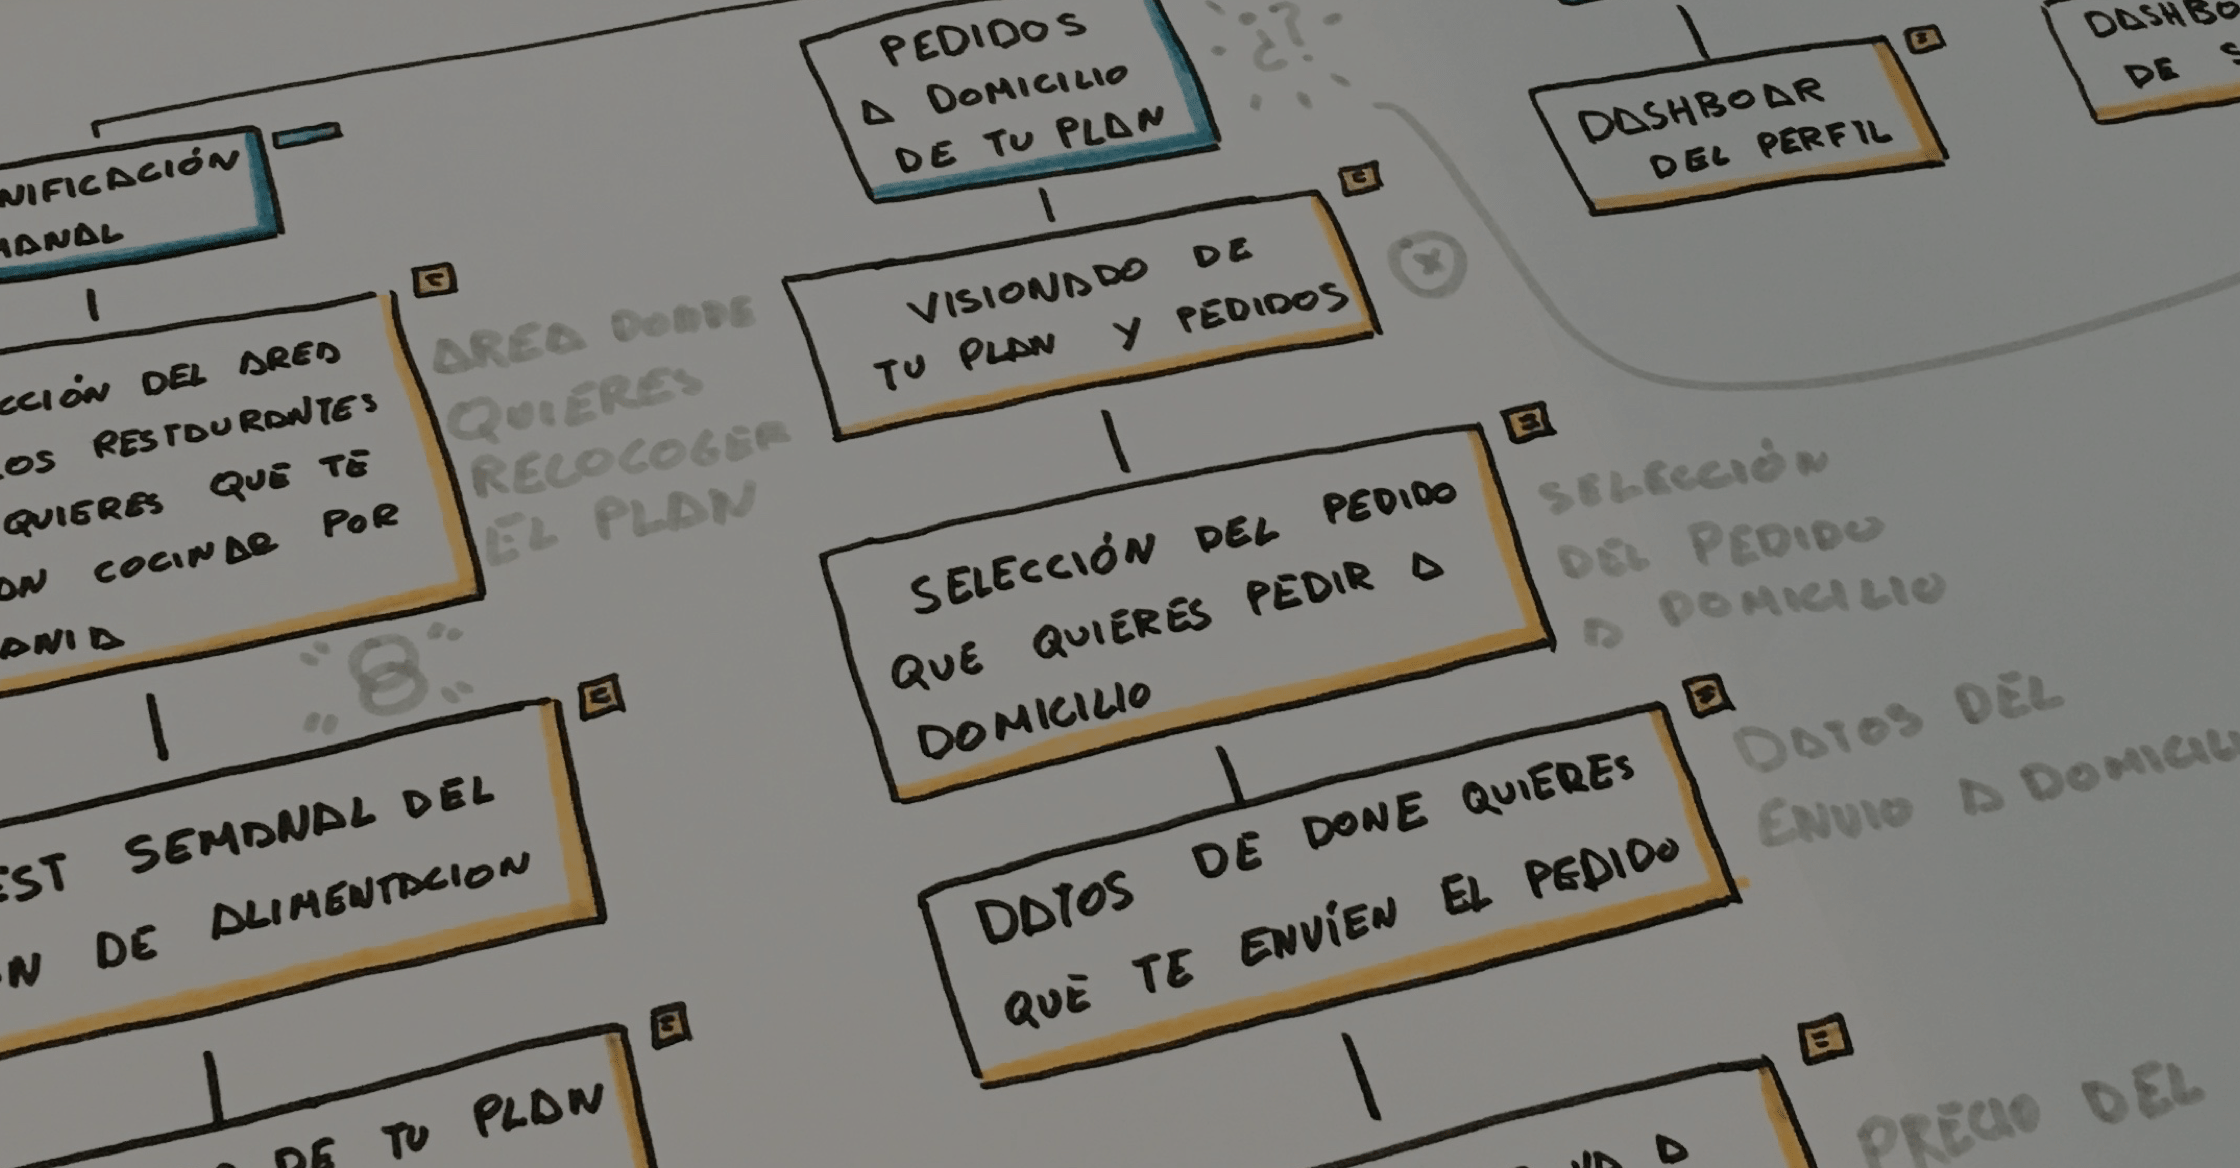 PEDIDOS
A DOMICILIO
DE TU PLAN
¿?
DASHBOAR
DEL PERFIL
DASHBO
DE S
NIFICACIÓN
MANAL
CCIÓN DEL AREA
LOS RESTAURANTES
QUIERES QUE TE
AN COCINAR POR
ANIA
AREA DONDE
QUIERES
RELOCOGER
EL PLAN
8
EST SEMANAL DEL
N DE ALIMENTACION
DE TU PLAN
VISIONADO DE
TU PLAN Y PEDIDOS
SELECCIÓN DEL PEDIDO
QUE QUIERES PEDIR A
DOMICILIO
SELECCIÓN
DEL PEDIDO
A DOMICILIO
DATOS DE DONE QUIERES
QUE TE ENVÍEN EL PEDIDO
DATOS DEL
ENVIO A DOMICILI
A
PRECIO DEL